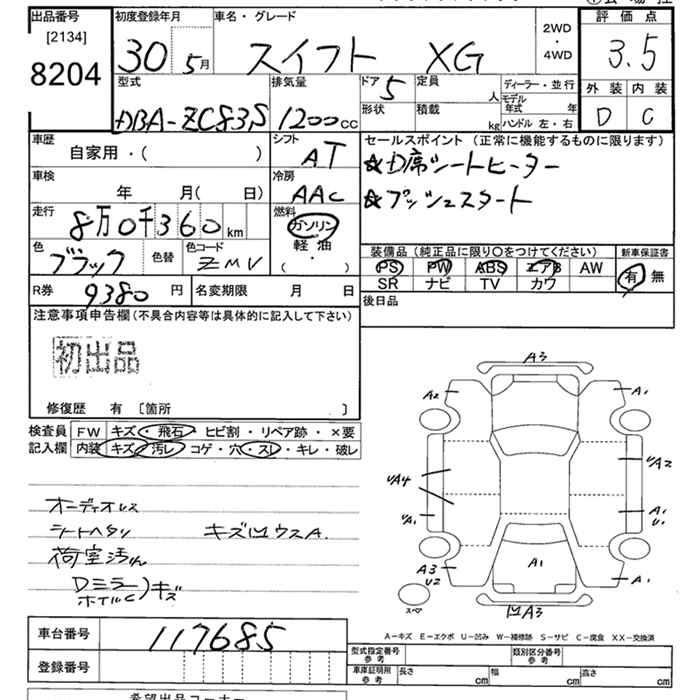 出品番号
[2134]
8204
初度登録年月
30 5月
車名・グレード
スイフト XG
2WD
・
4WD
評価点
3.5
外装 内装
D C
型式
DBA-ZC83S
排気量
1200cc
ドア
5
形状
定員
人
積載
kg
ディーラー・並行
モデル
年式 年
ハンドル 左・右
車歴
自家用・( )
シフト
AT
車検
年 月( 日)
冷房
AAC
走行
8万0千360km
燃料
ガソリン
軽油
( ・ )
色
ブラック
色替
色コード
ZMV
R券
9380円
名変期限 月 日
セールスポイント(正常に機能するものに限ります)
☆D席シートヒーター
☆プッシュスタート
装備品(純正品に限り〇をつけてください)
PS PW ABS エアB AW
SR ナビ TV カワ
新車保証書
有 無
後日品
注意事項申告欄(不具合内容等は具体的に記入して下さい)
初出品
修復歴 有 [箇所 ]
検査員
記入欄
FW キズ・飛石・ヒビ割・リペア跡・×要
内装 キズ・汚レ・コゲ・穴・スレ・キレ・破レ
オーディオレス
シートヘタリ キズ凹ウスA.
荷室汚れ
Dミラー
ホイルC)キズ
A3
A2
A1
UA4
UA2
UA1
A1
U1
A3
U2
A1
A1
スペア
凹A3
A-キズ E-エクボ U-凹み W-補修跡 S-サビ C-腐食 XX-交換済
車台番号
117685
登録番号
型式指定番号
参考
類別区分番号
参考
車庫証明用
参考
長さ cm
幅 cm
高さ cm
希望出品コーナー